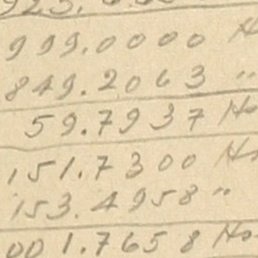 999.0000
849.2063 "
59.7937 Ho
151.7300
153.4958 "
001.7658 Ho